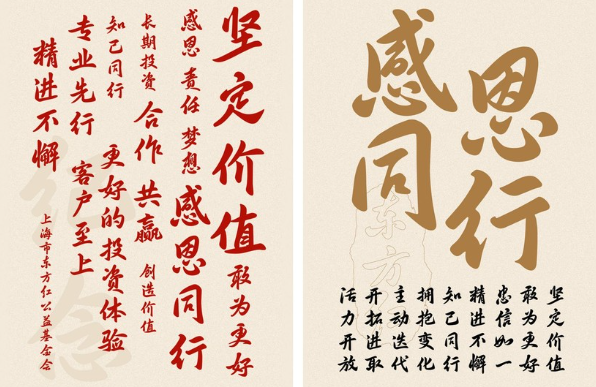 坚定价值 敢为更好
感恩 责任 梦想 感恩同行
长期投资 合作 共赢 创造价值
知己同行 更好的投资体验
专业先行 客户至上
精进不懈
上海市东方红公益基金会
纪念
感恩
同行
东方红
坚定价值
敢为更好
忠信如一
精进不懈
知己同行
拥抱变化
主动迭代
开拓进取
活力开放